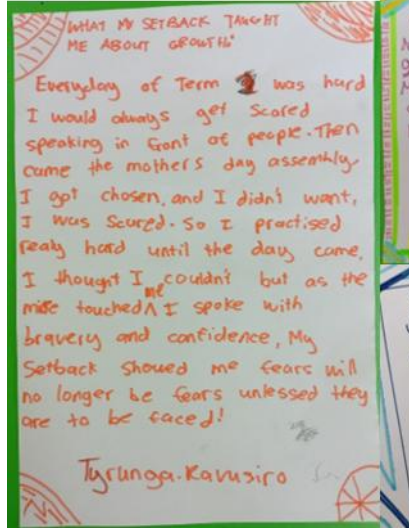 WHAT MY SETBACK TAUGHT
ME ABOUT GROWTH
Everyday of Term was hard
I would always get Scared
speaking in front of people. Then
came the mothers day assembly
I got chosen, and I didn't want,
I was Scared. So I practised
realy hard until the day came,
I thought I couldn't but as the
mice touched ^ me I spoke with
bravery and confidence, My
Setback Showed me fears will
no longer be fears unlessed they
are to be faced!
Tyrunga-Kavusiro